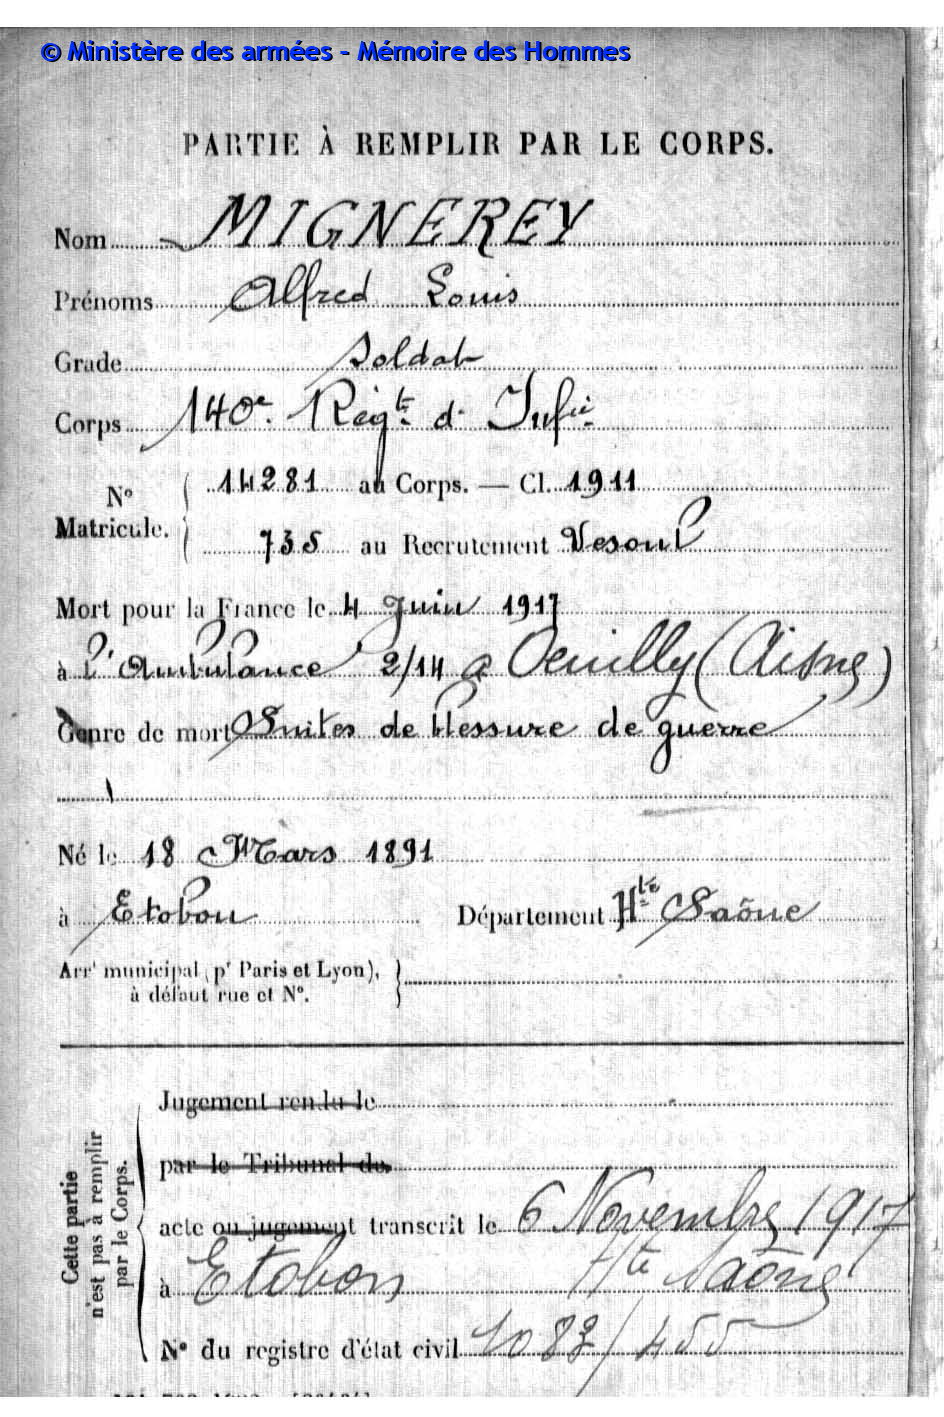 © Ministère des armées - Mémoire des Hommes
PARTIE À REMPLIR PAR LE CORPS.
Nom MIGNEREY
Prénoms Alfred Louis
Grade Soldat
Corps 140e Régt d'Infie
No Matricule. { 14281 au Corps. — Cl. 1911
735 au Recrutement Vesoul
Mort pour la France le 4 Juin 1917
à l'Ambulance 2/14 à Oeuilly (Aisne)
Genre de mort Suites de blessure de guerre
Né le 18 Mars 1891
à Etobon Département Hte Saône
Arrt municipal (pr Paris et Lyon), }
à défaut rue et No.
Cette partie n'est pas à remplir par le Corps.
Jugement rendu le
par le Tribunal de
acte ou jugement transcrit le 6 Novembre 1917
à Etobon Hte Saône
No du registre d'état civil 1083/455